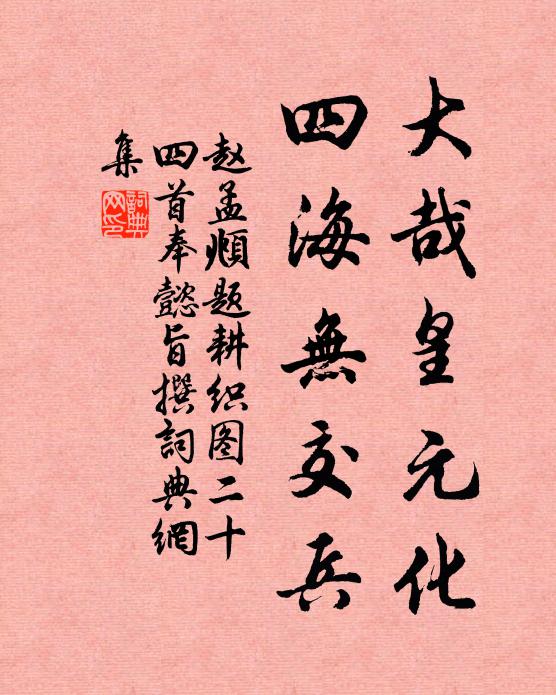 大哉皇元化
四海無交兵
赵孟頫题耕织图二十
四首奉懿旨撰詞典網
集
詞典网印